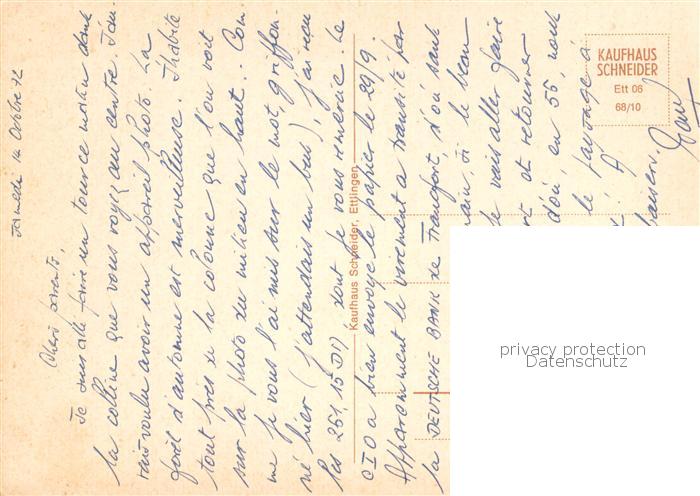 Samedi 14 Octobre 72
Chers parents,
Je suis allé faire un tour ce matin dans
la colline que vous voyez au centre. J'au-
rais voulu avoir un appareil photo. La
forêt d'automne est merveilleuse. J'habite
tout près de la colonne que l'on voit
sur la photo du milieu en haut. Com-
me je vous l'ai mis sur le mot, griffon-
né hier (j'attendais un bus), j'ai reçu
les 251,15 DM, dont je vous remercie. Le
CIO a bien envoyé le papier le 29/9.
Apparemment le virement a transité par
la DEUTSCHE BANK de Transfort, d'où sans
main. Si le beau
je vais aller faire
et retourner
d'où, en 55, nous
le paysage à
KAUFHAUS
SCHNEIDER
Ett 06
68/10
Kaufhaus Schneider, Ettlingen
privacy protection
Datenschutz